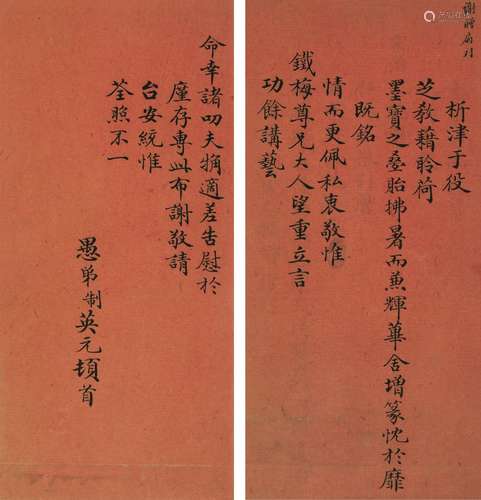 謝贈扇对
析津于役
芝敎藉聆荷
墨寶之叠貽拂暑而蕙輝華舍增篆忱於靡
既銘
情而更佩私衷敬惟
鐵梅尊兄大人望重立言
功餘講藝
命幸諸叨夫摛適差告慰於
廑存專此布謝敬請
台安統惟
荃照不一
愚弟制英元頓首